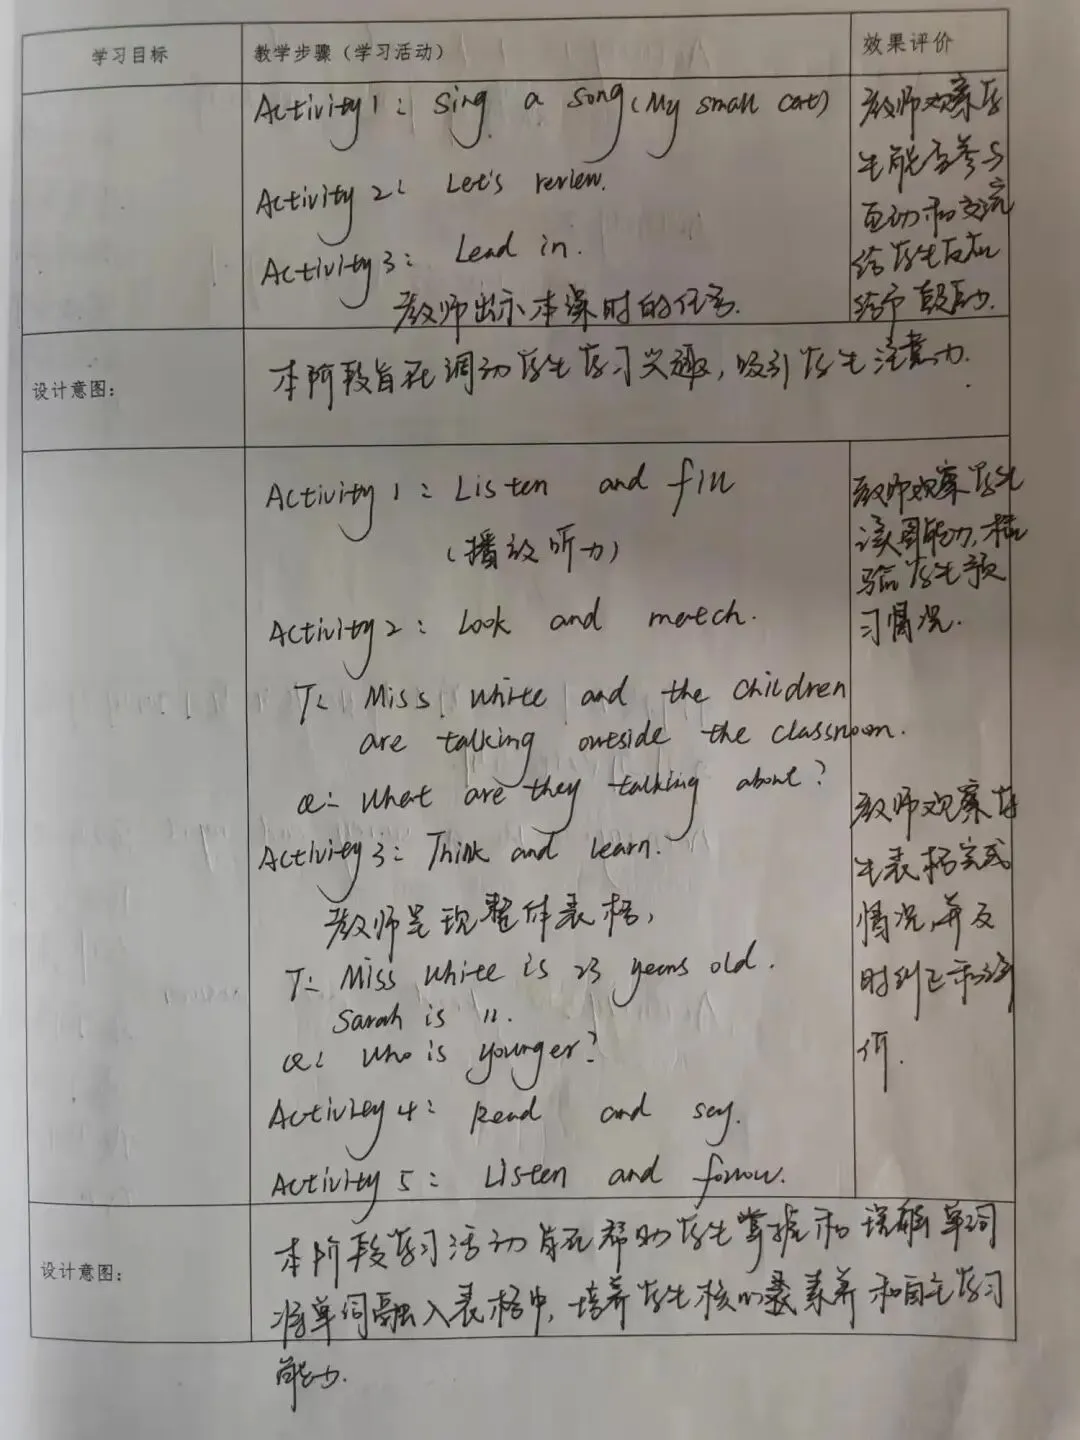 学习目标
教学步骤（学习活动）
效果评价
Activity 1: Sing a song (My small cat)
Activity 2: Let's review.
Activity 3: Lead in.
教师出示本课时的任务.
教师观察学
生能否参与
互动和交流
给学生反应
给予帮助.
设计意图：
本阶段旨在调动学生学习兴趣，吸引学生注意力.
Activity 1: Listen and fill
（播放听力）
Activity 2: Look and match.
T: Miss White and the children
are talking outside the classroom.
Q: What are they talking about?
Activity 3: Think and learn.
教师呈现整体表格,
T: Miss White is 23 years old.
Sarah is 11.
Q: Who is younger?
Activity 4: Read and say.
Activity 5: Listen and follow.
教师观察学生
读图能力, 检
验学生预
习情况.
教师观察学
生表格完成
情况,并及
时纠正和评
价.
设计意图：
本阶段学习活动旨在帮助学生掌握和理解单词
将单词融入表格中, 培养学生核心素养和自主学习
能力.